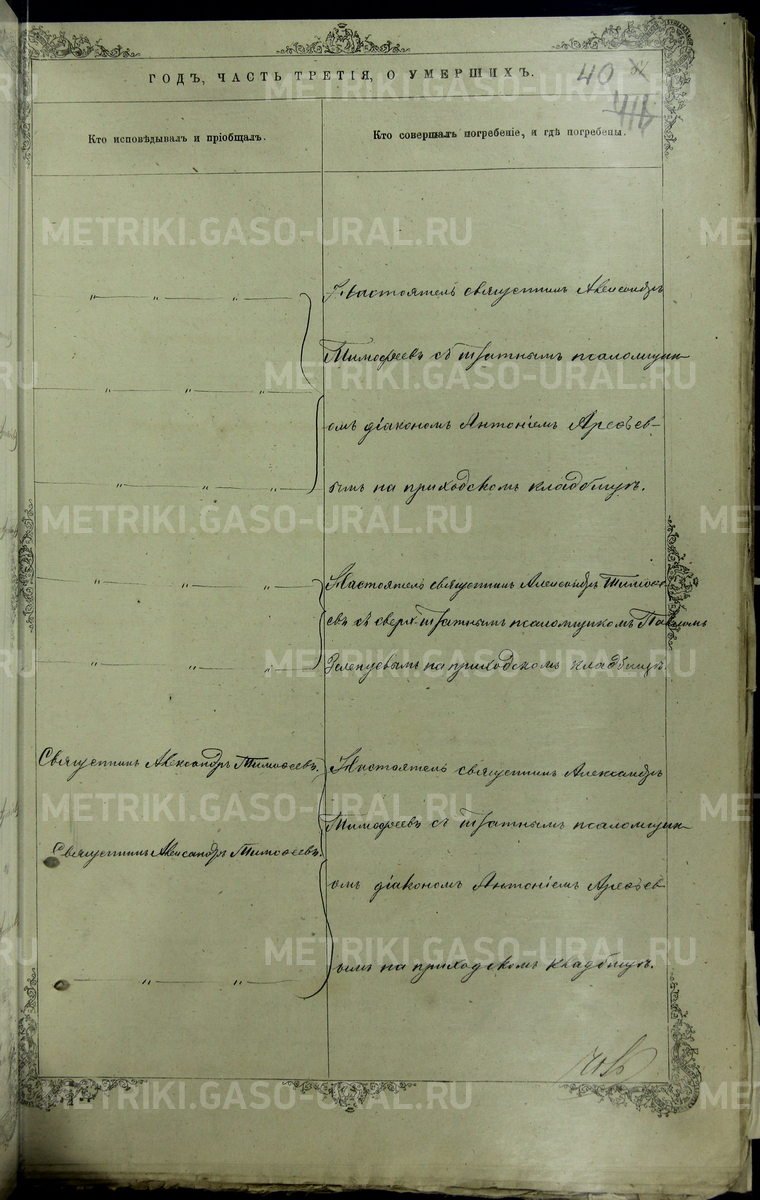 ГОДЪ, ЧАСТЬ ТРЕТІЯ, О УМЕРШИХЪ.
40
Кто исповѣдывалъ и пріобщалъ.
Кто совершалъ погребеніе, и гдѣ погребены.
METRIKI.GASO-URAL.RU
Настоятель священникъ Александръ
Тимофеевъ съ штатнымъ псаломщик-
омъ діакономъ Антоніемъ Арефьев-
ымъ на приходскомъ кладбищѣ.
Настоятель священникъ Александръ Тимофе-
евъ съ сверхштатнымъ псаломщикомъ Павломъ
на приходскомъ кладбищѣ.
Священникъ Александръ Тимофеевъ.
Священникъ Александръ Тимофеевъ.
Настоятель священникъ Александръ
Тимофеевъ съ штатнымъ псаломщик-
омъ діакономъ Антоніемъ Арефьев-
ымъ на приходскомъ кладбищѣ.